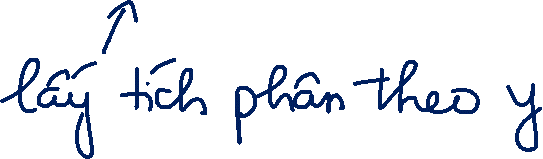 lấy tích phân theo y